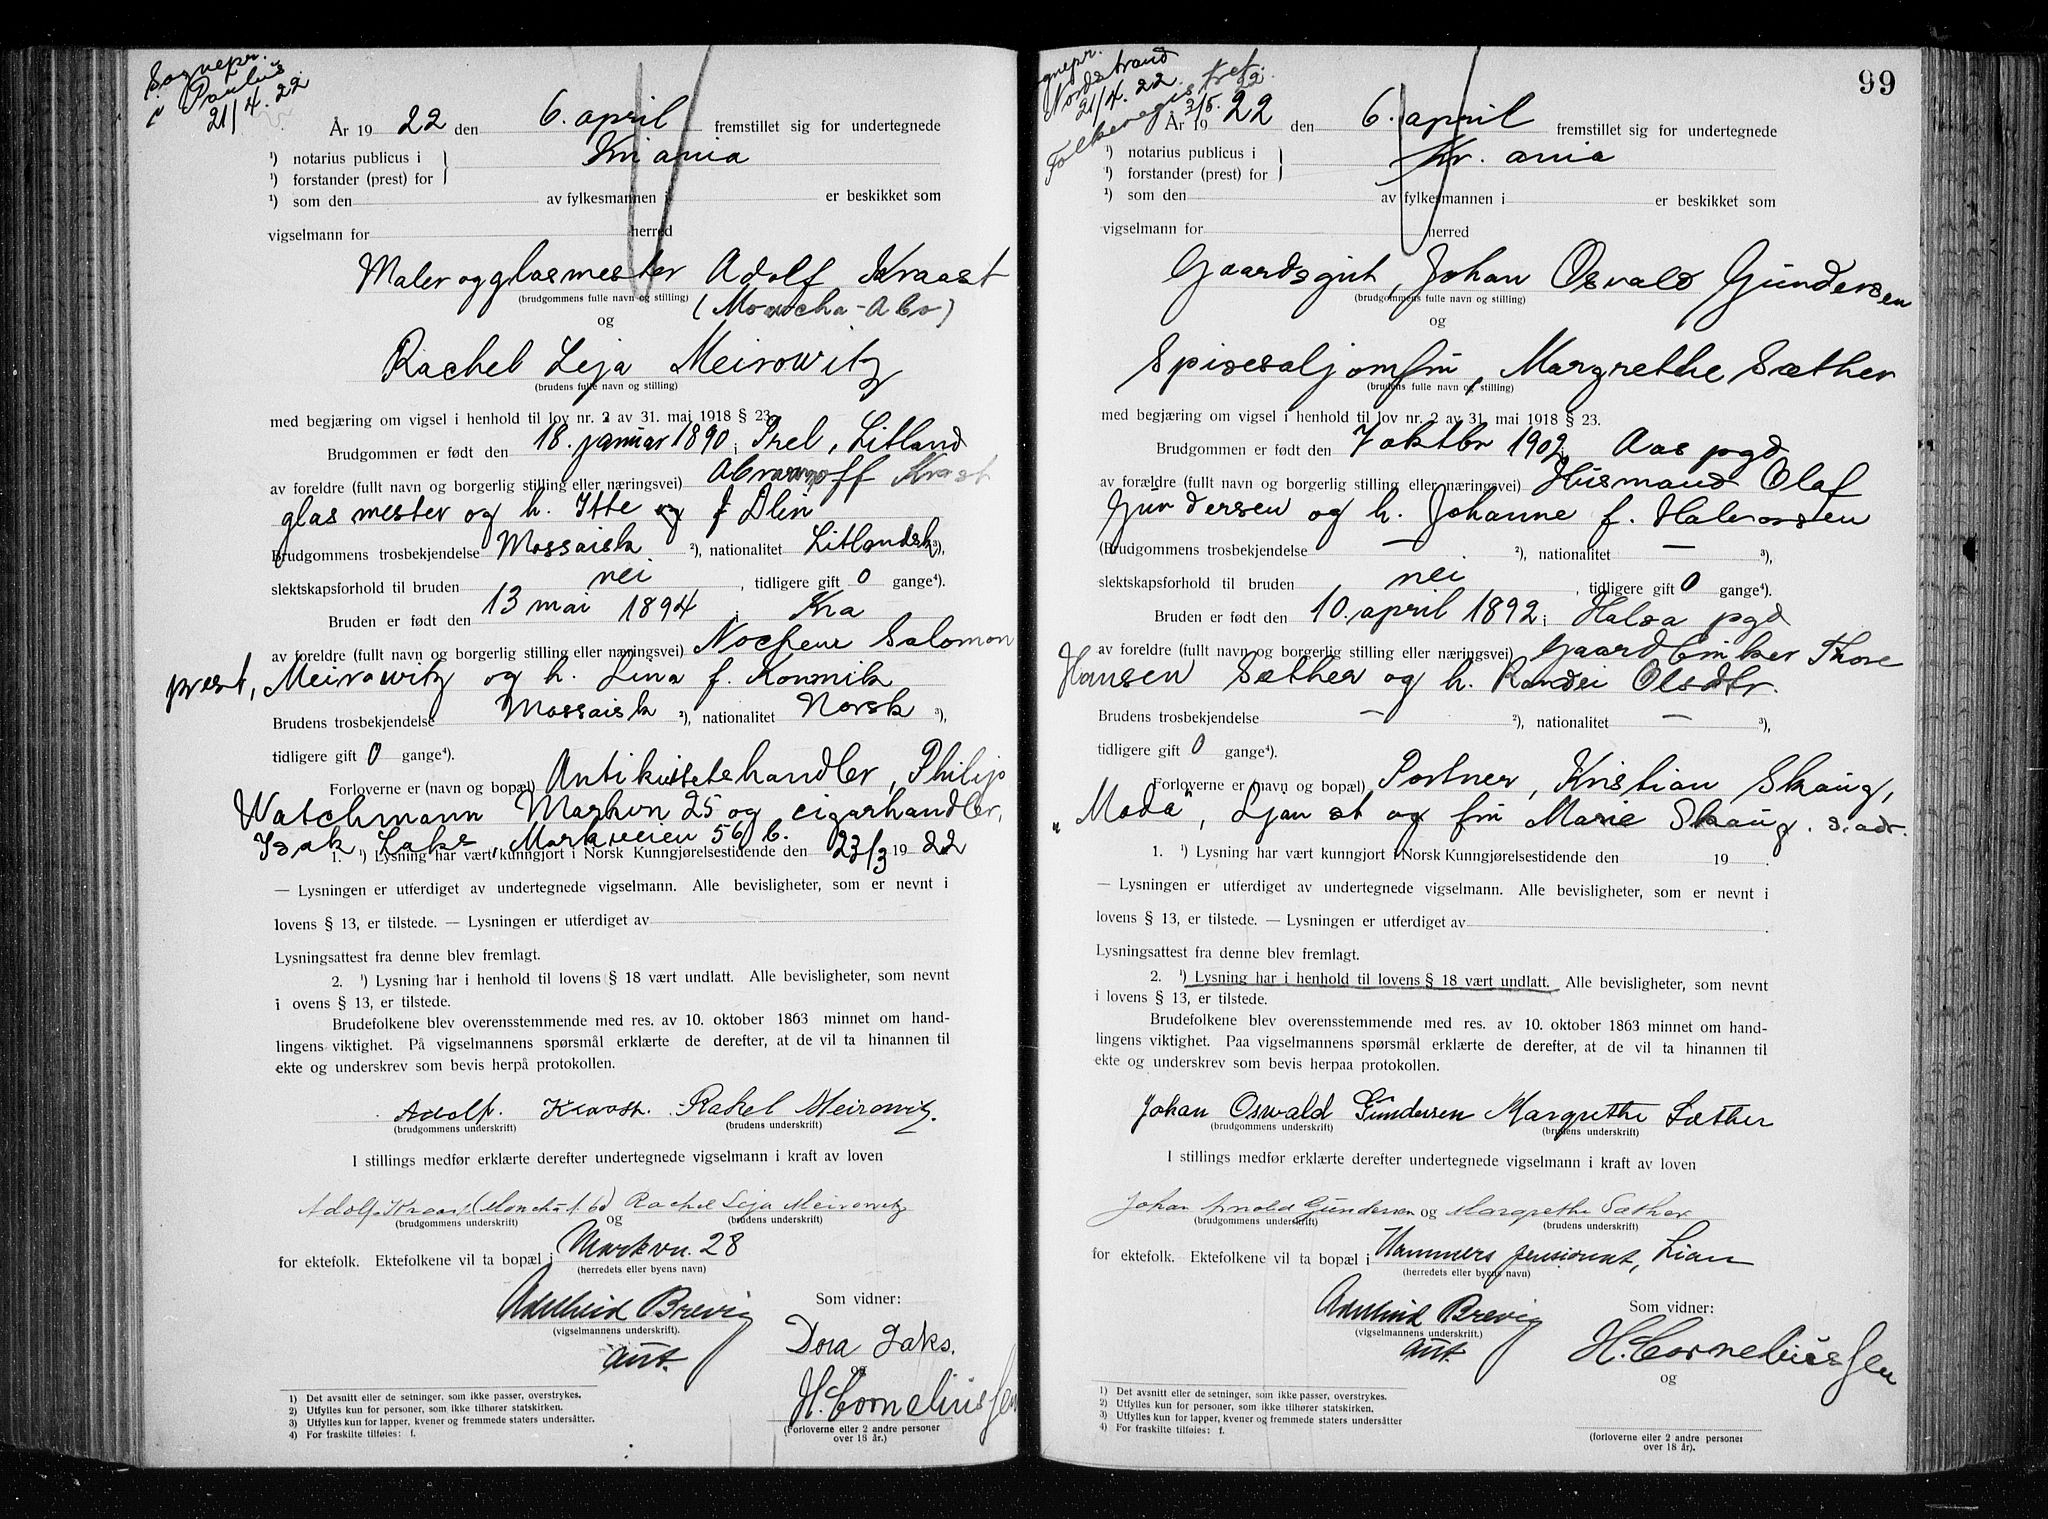 Sognepr.
i Paulus
21/4. 22
År 19 22 den 6. april fremstillet sig for undertegnede
¹) notarius publicus i Kr.ania
¹) forstander (prest) for
¹) som den av fylkesmannen i er beskikket som
vigselmann for herred
Maler og glasmester Adolf Kraast
(brudgommens fulle navn og stilling)
og
Rachel Leja Meirowitz
(brudens fulle navn og stilling)
med begjæring om vigsel i henhold til lov nr. 2 av 31. mai 1918 § 23.
Brudgommen er født den 18. januar 1890, Prel, Litland
av foreldre (fullt navn og borgerlig stilling eller næringsvei) Krast
glasmester og h. Itte f Dlin
Brudgommens trosbekjendelse Mossaisk ²), nationalitet Litlandsk ³),
slektskapsforhold til bruden nei, tidligere gift 0 gange⁴).
Bruden er født den 13 mai 1894 i Kra
av foreldre (fullt navn og borgerlig stilling eller næringsvei) Salomon
prest, Meirowitz og h. Lina f.
Brudens trosbekjendelse Mossaisk ²), nationalitet Norsk ³),
tidligere gift 0 gange⁴).
Forloverne er (navn og bopæl) Antikvitetshandler, Philip
Watchmann Markvn 25 og cigarhandler,
Isak Laks, Markveien 56 b.
1. ¹) Lysning har vært kunngjort i Norsk Kunngjørelsestidende den 23/3 19 22
— Lysningen er utferdiget av undertegnede vigselmann. Alle bevisligheter, som er nevnt i
lovens § 13, er tilstede. — Lysningen er utferdiget av
Lysningsattest fra denne blev fremlagt.
2. ¹) Lysning har i henhold til lovens § 18 vært undlatt. Alle bevisligheter, som nevnt
i ovens § 13, er tilstede.
Brudefolkene blev overensstemmende med res. av 10. oktober 1863 minnet om hand-
lingens viktighet. På vigselmannens spørsmål erklærte de derefter, at de vil ta hinannen til
ekte og underskrev som bevis herpå protokollen.
Adolf. Kraast. Rakel Meirowitz.
(brudgommens underskrift) (brudens underskrift)
I stillings medfør erklærte derefter undertegnede vigselmann i kraft av loven
Adolf Kraast Rachel Leja Meirowitz
(brudgommens underskrift) og (brudens underskrift)
for ektefolk. Ektefolkene vil ta bopæl i Markvn. 28
(herredets eller byens navn)
Adelheid Brevig
(vigselmannens underskrift).
aut.
Som vidner:
Dora Laks.
og
H. Corneliussen
(Forloverne eller 2 andre personer
over 18 år.)
1) Det avsnitt eller de setninger, som ikke passer, overstrykes.
2) Utfylles kun for personer, som ikke tilhører statskirken.
3) Utfylles kun for lapper, kvener og fremmede staters undersåtter.
4) For fraskilte tilføies: f.
99
Sognepr.
Nordstrand
21/4. 22.
Folkeregistret.
2/5. 22
År 19 22 den 6. april fremstillet sig for undertegnede
¹) notarius publicus i Kr.ania
¹) forstander (prest) for
¹) som den av fylkesmannen i er beskikket som
vigselmann for herred
Gaardsgut, Johan Osvald Gundersen
(brudgommens fulle navn og stilling)
og
Spisesaljomfru, Margrethe Sæther
(brudens fulle navn og stilling)
med begjæring om vigsel i henhold til lov nr. 2 av 31. mai 1918 § 23.
Brudgommen er født den 7 oktbr 1902, Aas pgd
av forældre (fullt navn og borgerlig stilling eller næringsvei) Husmand Olaf
Gundersen og h. Johanne f. Halvorsen
(Brudgommens trosbekjendelse — ²), nationalitet — ³),
slektskapsforhold til bruden nei, tidligere gift 0 gange⁴).
Bruden er født den 10. april 1892 i Halsa pgd
av foreldre (fullt navn og borgerlig stilling eller næringsvei) Gaardbruker Thore
Hansen Sæther og h. Randi Olsdtr.
Brudens trosbekjendelse — ²), nationalitet — ³),
tidligere gift 0 gange⁴).
Forloverne er (navn og bopæl) Portner, Kristian Skaug,
"Moda", Ljan st og fru Marie Skaug. s. adr.
1. ¹) Lysning har vært kunngjort i Norsk Kunngjørelsestidende den 19 .
— Lysningen er utferdiget av undertegnede vigselmann. Alle bevisligheter, som er nevnt i
lovens § 13, er tilstede. — Lysningen er utferdiget av
Lysningsattest fra denne blev fremlagt.
2. ¹) Lysning har i henhold til lovens § 18 vært undlatt. Alle bevisligheter, som nevnt
i lovens § 13, er tilstede.
Brudefolkene blev overensstemmende med res. av 10. oktober 1863 minnet om hand-
lingens viktighet. Paa vigselmannens spørsmål erklærte de derefter, at de vil ta hinannen til
ekte og underskrev som bevis herpaa protokollen.
Johan Oswald Gundersen Margrethe Sæther
(brudgommens underskrift) (brudens underskrift)
I stillings medfør erklærte derefter undertegnede vigselmann i kraft av loven
Johan Gundersen og Margrethe Sæther
(brudgommens underskrift) (brudens underskrift)
for ektefolk. Ektefolkene vil ta bopæl i Hammers pensionat, Lian
(herredets eller byens navn)
Adelheid Brevig
(vigselmannens underskrift.)
aut.
Som vidner:
H. Corneliussen
og
(forloverne eller 2 andre personer
over 18 år).
1) Det avsnitt eller de setninger, som ikke passer, overstrykes.
2) Utfylles kun for personer, som ikke tilhører statskirken.
3) Utfylles kun for lapper, kvener og fremmede staters undersåtter
4) For fraskilte tilføies: f.